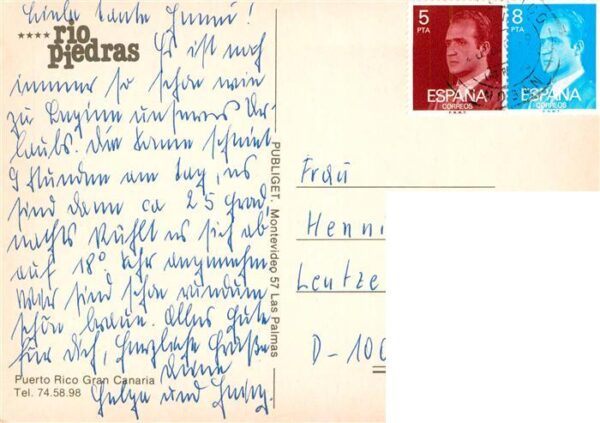 Liebe Tante Henni!
★★★★ rio piedras
Es ist noch
immer so schön wie
zu Beginn unseres Ur-
laubs. Die Sonne scheint
9 Stunden am Tag, es
sind dann ca 25 Grad,
nachts kühlt es sich ab
auf 18°. Sehr angenehm.
Wir sind schon rundum
schön braun. Alles Gute
für Dich, herzliche Grüße
Deine
Helga und
Puerto Rico Gran Canaria
Tel. 74.58.98
PUBLIGET. Montevideo 57 Las Palmas
5 PTA
ESPAÑA
CORREOS
8 PTA
ESPAÑA
CORREOS
Frau
Henni
Leutze
D-100